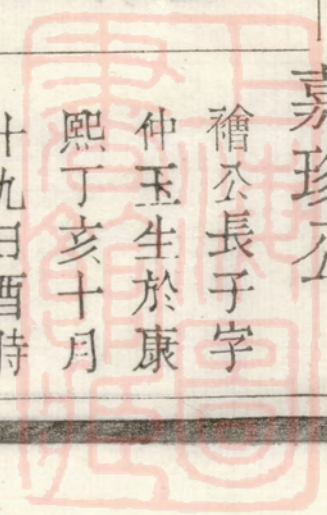 嘉珍公
禬公長子字
仲玉生於康
熙丁亥十月
十九日酉時